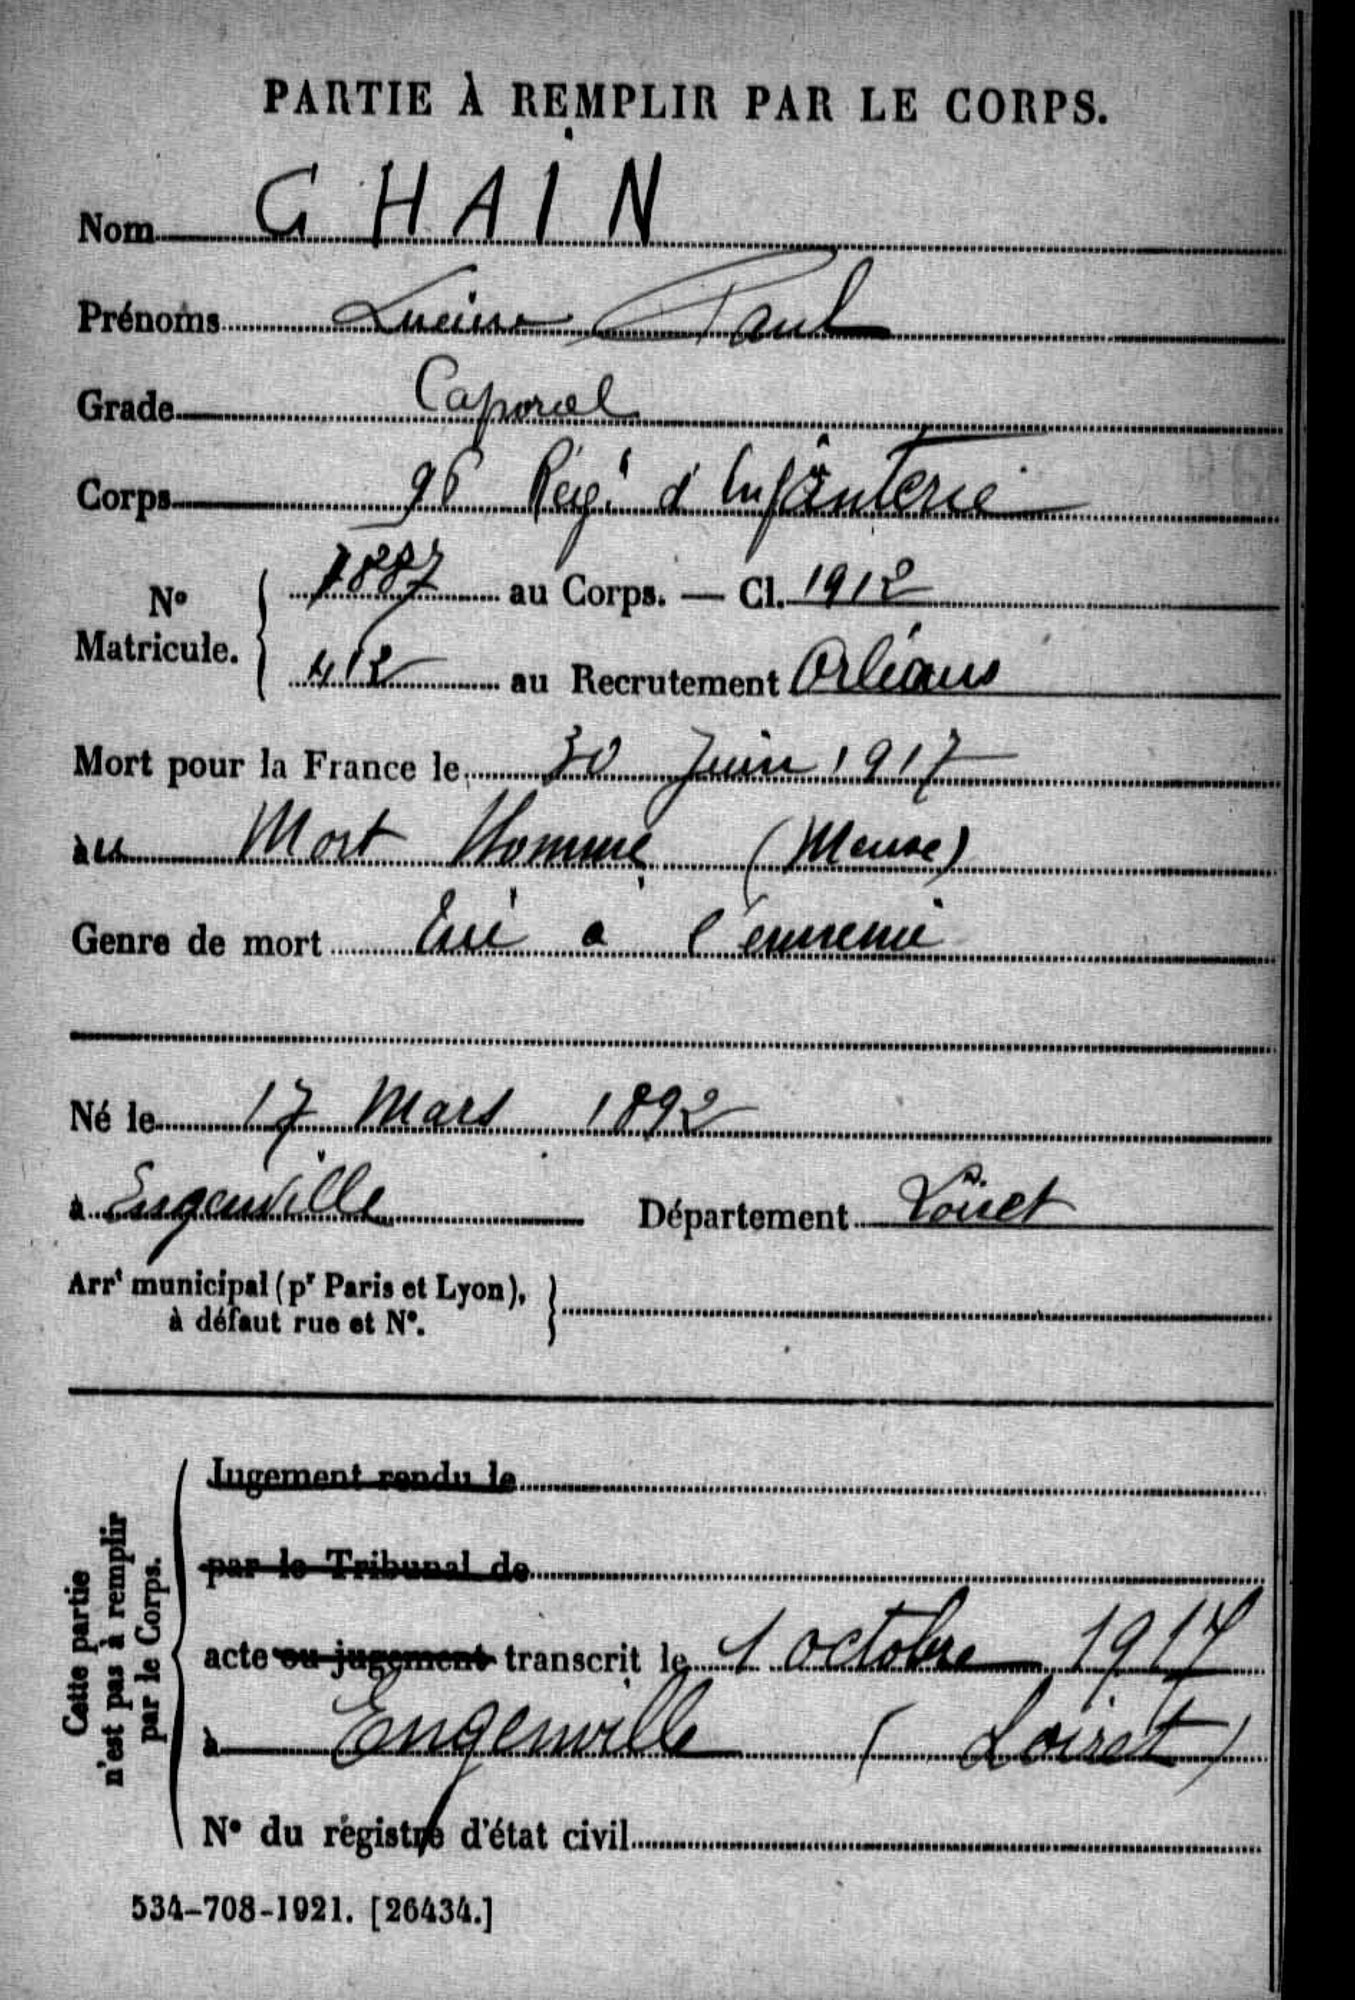 PARTIE À REMPLIR PAR LE CORPS.
Nom GHAIN
Prénoms Lucien Paul
Grade Caporal
Corps 96 Régt d'Infanterie
N° Matricule. 7887 au Corps. — Cl. 1912
412 au Recrutement Orléans
Mort pour la France le 30 Juin 1917
au Mort Homme (Meuse)
Genre de mort Tué a l'ennemi
Né le 17 Mars 1892
à Engenville Département Loiret
Arrt municipal (pr Paris et Lyon),
à défaut rue et N°.
Cette partie
n'est pas à remplir
par le Corps.
Jugement rendu le
par le Tribunal de
acte ou jugement transcrit le 1 octobre 1917
à Engenville (Loiret)
N° du registre d'état civil
534-708-1921. [26434.]